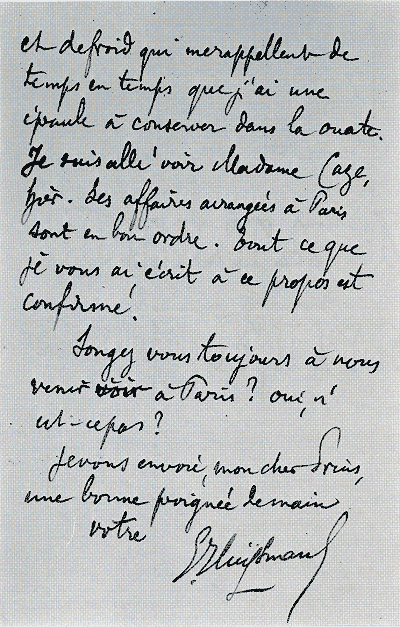 et de froid qui me rappellent de
temps en temps que j'ai une
épaule à conserver dans la ouate.
Je suis allé voir Madame Caze,
hier. Ses affaires arrangées à Paris
sont en bon ordre. Tout ce que
je vous ai écrit à ce propos est
confirmé.
Songez vous toujours à nous
venir voir à Paris? oui, n'
est-ce pas?
Je vous envoie, mon cher Prins,
une bonne poignée de main
votre
G Huysmans